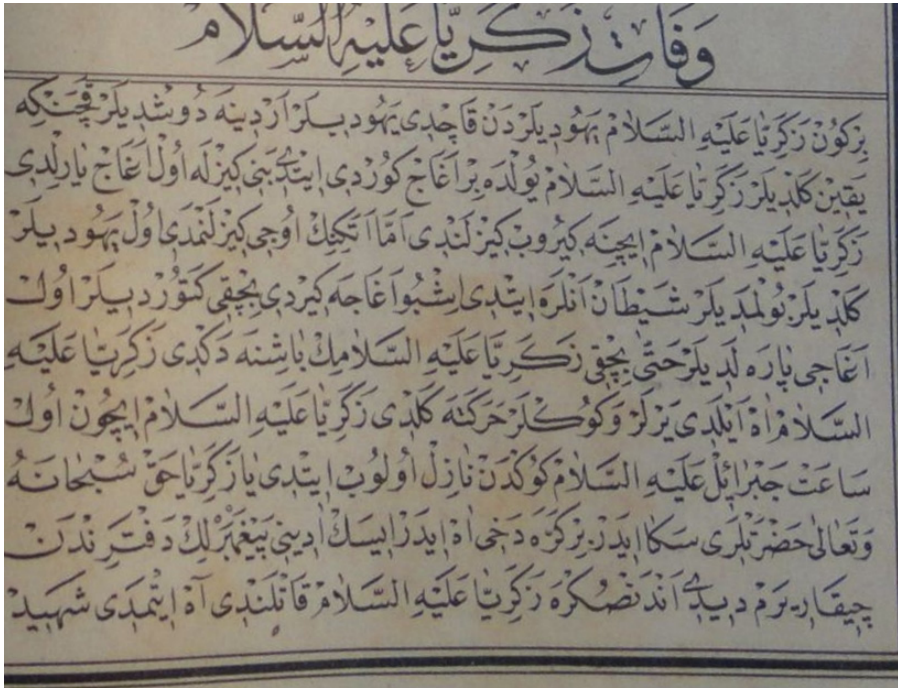 وَفَاتِ زَكَرِيَّا عَلَيْهِ السَّلَام
بِرْكُونْ زَكَرِيَّا عَلَيْهِ السَّلَامْ يَهُودِيلَرْدَنْ قَاچِدِى يَهُودِيلَرْ آرْدِينَه دُوشْدِيلَرْ قَچَنْكِه
يَقِينْ كَلْدِيلَرْ زَكَرِيَّا عَلَيْهِ السَّلَامْ يُولْدَه بِرْ اَغَاجْ كُورْدِى اِيتْدِى بَنِى كِيزْلَه اُولْ اَغَاجْ يَارِلْدِى
زَكَرِيَّا عَلَيْهِ السَّلَامْ اِيچِنَه كِيرُوبْ كِيزْلَنْدِى اَمَّا اَتَكِنِكْ اُوجِى كِيزْلَنْمَدِى اُولْ يَهُودِيلَرْ
كَلْدِيلَرْ بُولْمَدِيلَرْ شَيْطَانْ اَنْلَرَه اِيتْدِى اِشْبُو اَغَاجَه كِيرْدِى بِچْقِى كَتُورْدِيلَرْ اُولْ
اَغَاجِى پَارَه لَدِيلَرْ حَتَّى بِچْقِى زَكَرِيَّا عَلَيْهِ السَّلَامِكْ بَاشِنَه دَكْدِى زَكَرِيَّا عَلَيْهِ
السَّلَامْ اٰهْ اَيْلَدِى يَرْلَرْ وَكُوكْلَرْ حَرَكَتَه كَلْدِى زَكَرِيَّا عَلَيْهِ السَّلَامْ اِيچُونْ اُولْ
سَاعَتْ جَبْرَائِلْ عَلَيْهِ السَّلَامْ كُوكْدَنْ نَازِلْ اُولُوبْ اِيتْدِى يَا زَكَرِيَّا حَقْ سُبْحَانَهُ
وَتَعَالٰى حَضْرَتْلَرِى سَكَا اِيدَرْ بِرْكَرَه دَخِى اٰهْ اِيدَرْ اِيسَكْ اَدِينِى پَيْغَمْبَرْلِكْ دَفْتَرِنْدَنْ
چِيقَارِيرَمْ دِيدِى اَنْدَنْصُكْرَه زَكَرِيَّا عَلَيْهِ السَّلَامْ قَاتْلَنْدِى آهْ اِيتْمَدِى شَهِيدْ